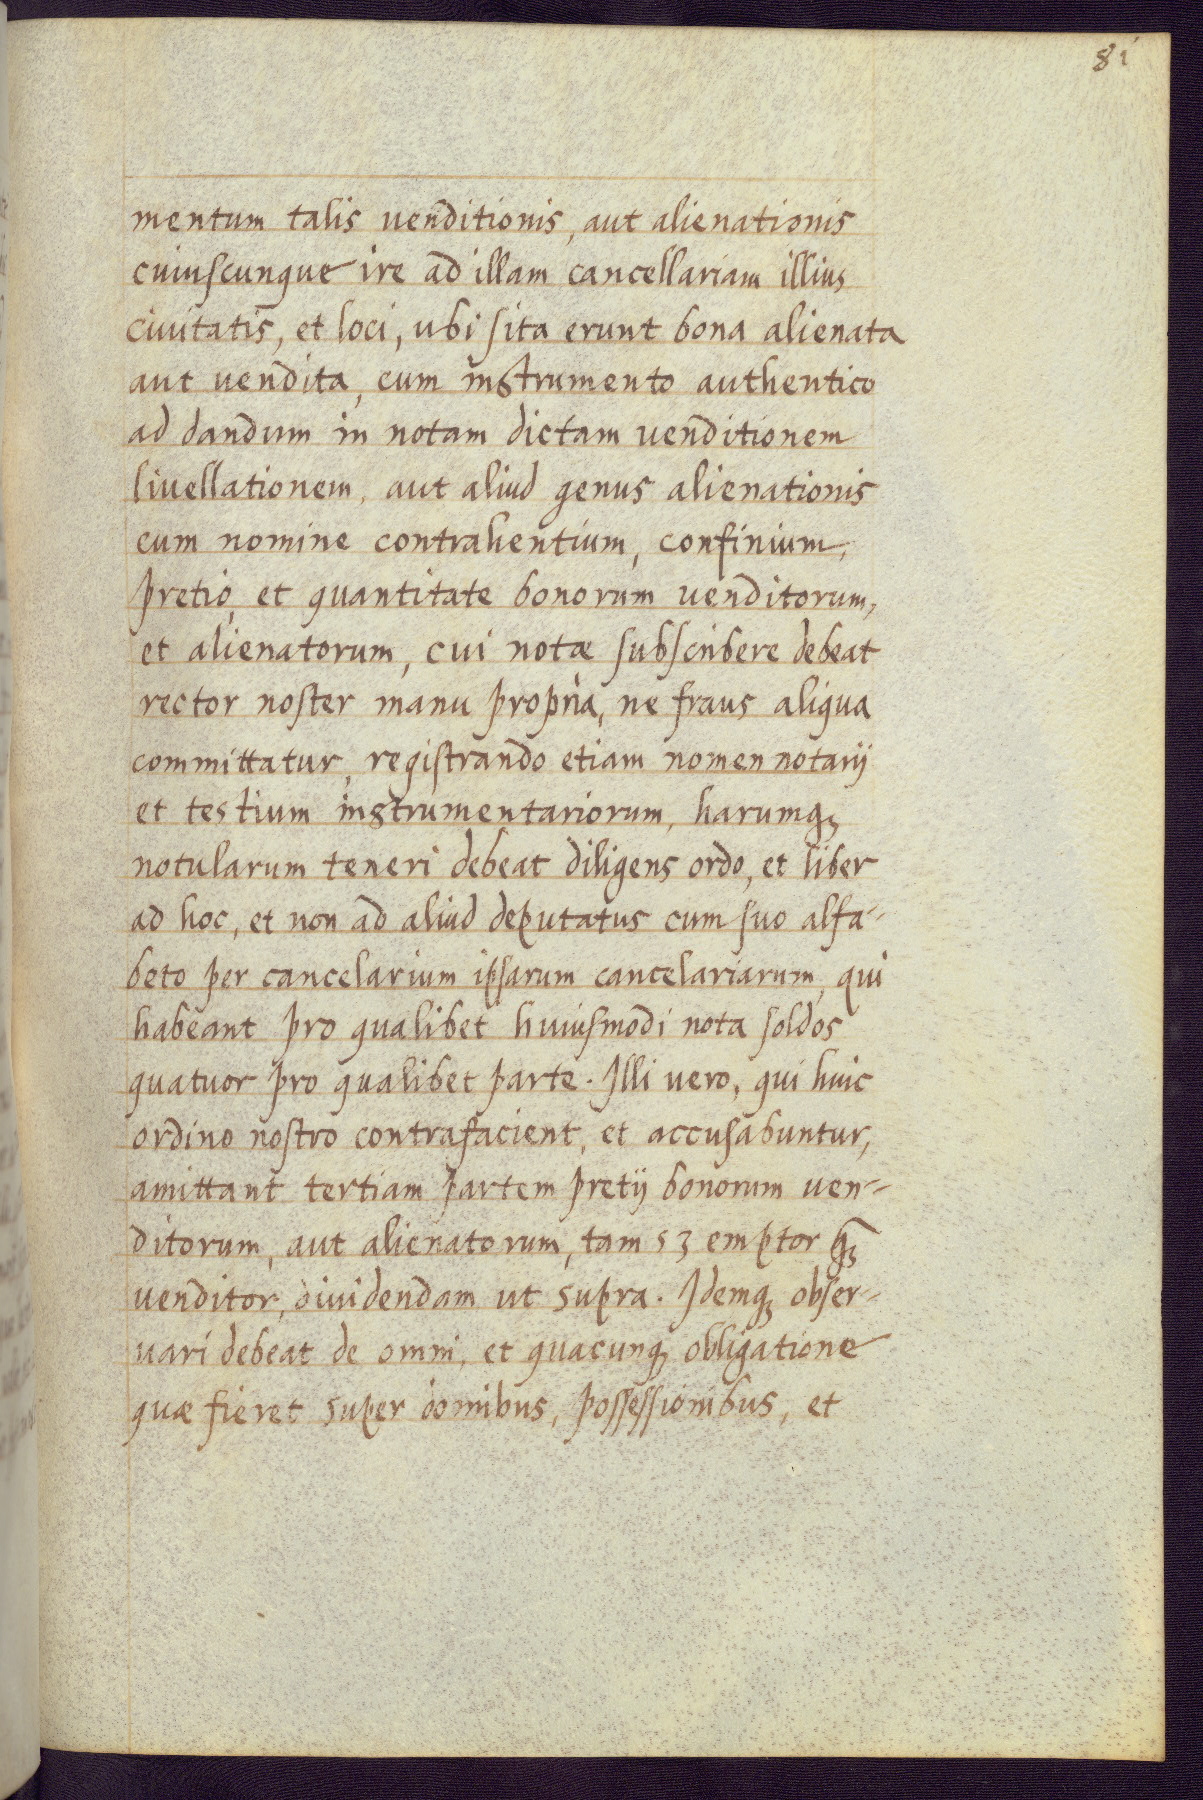 81
mentum talis venditionis, aut alienationis
cuiuscunque ire ad illam cancellariam illius
ciuitatis, et loci, ubi sita erunt bona alienata
aut vendita, cum instrumento authentico
ad dandum in notam dictam venditionem
liuellationem, aut aliud genus alienationis
cum nomine contrahentium, confinium,
pretio, et quantitate bonorum venditorum,
et alienatorum, cui notæ subscribere debeat
rector noster manu propria, ne fraus aliqua
committatur, registrando etiam nomen notarij
et testium instrumentariorum, harumq;
notularum teneri debeat diligens ordo, et liber
ad hoc, et non ad aliud deputatus cum suo alfa-
beto per cancelarium ipsarum cancelariarum, qui
habeant pro qualibet huiusmodi nota soldos
quatuor pro qualibet parte. Illi vero, qui huic
ordino nostro contrafacient, et accusabuntur,
amittant tertiam partem pretij bonorum ven-
ditorum, aut alienatorum, tam sꝫ emptor qꝫ
venditor, diuidendam ut supra. Idemq; obser-
uari debeat de omni, et quacunq; obligatione
quæ fieret super domibus, possessionibus, et